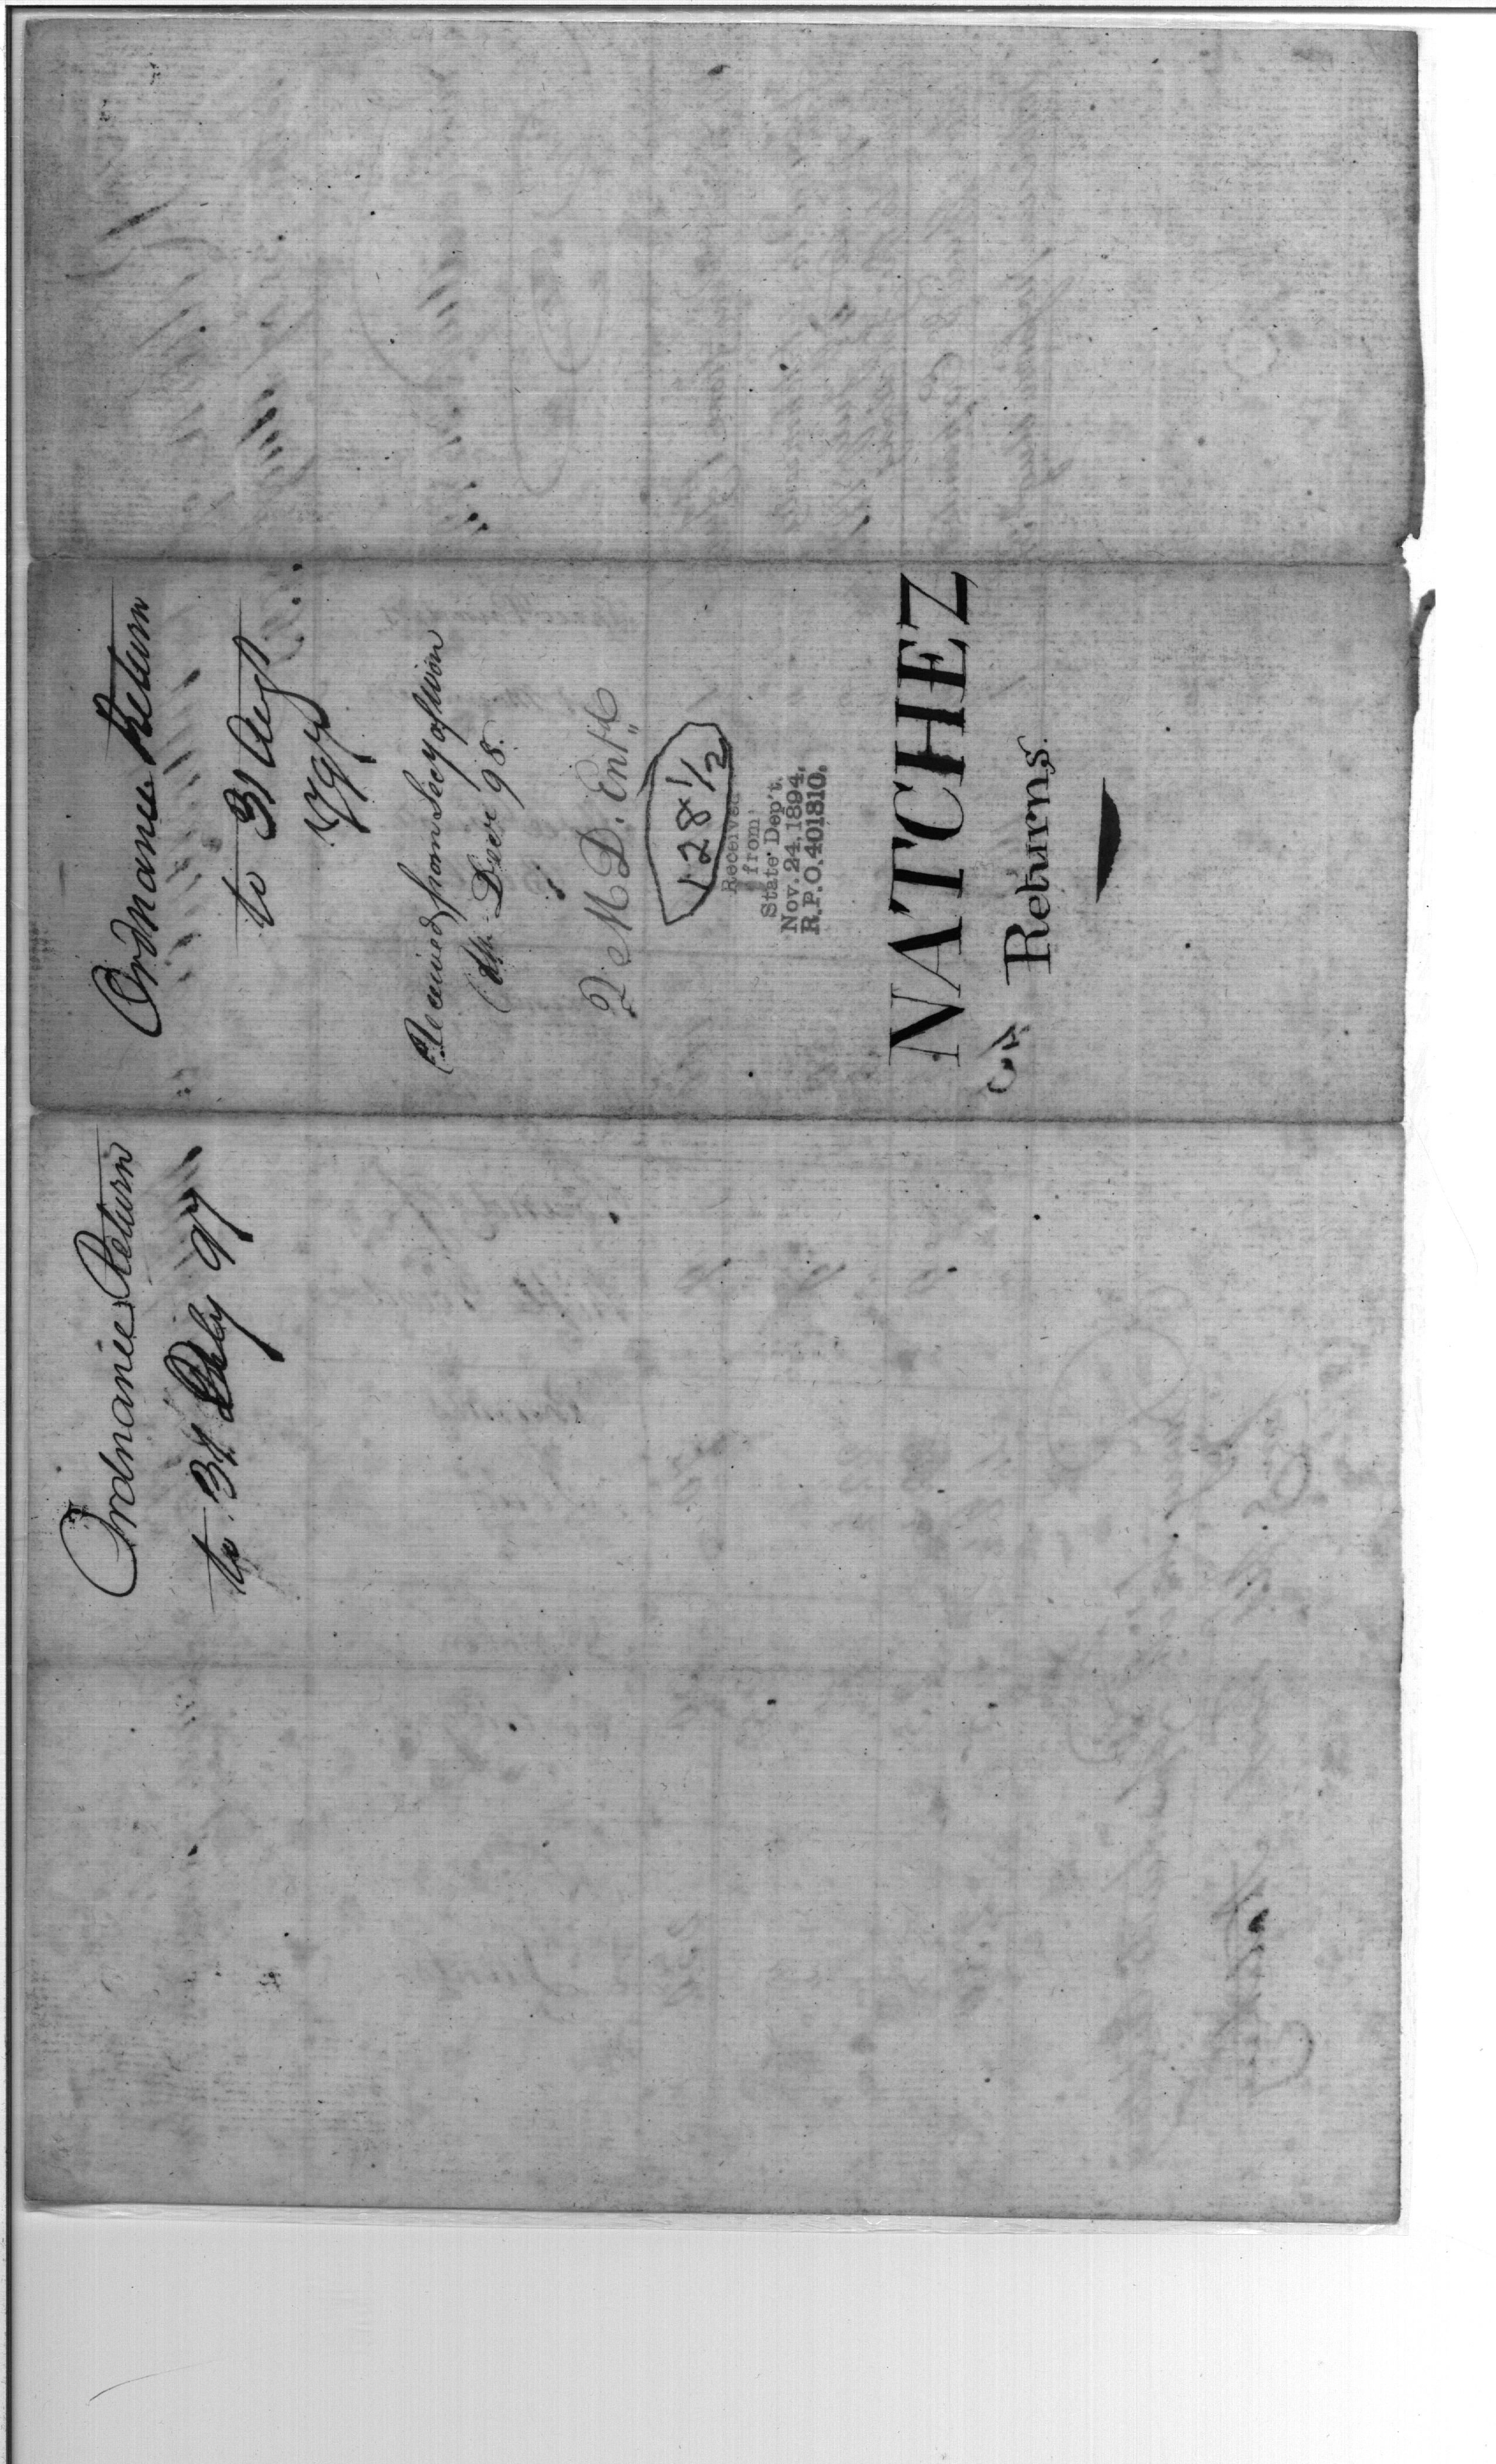 Ordnance Return
to 31 Augt
1797
Received from Secy of War
6th Decr 98.
2. M D. Entd
128 1/2
Received
from
State Dep't.
Nov. 24, 1894.
R.P.O. 401810.
NATCHEZ
Returns.
Ordnance Return
to 31 July 97